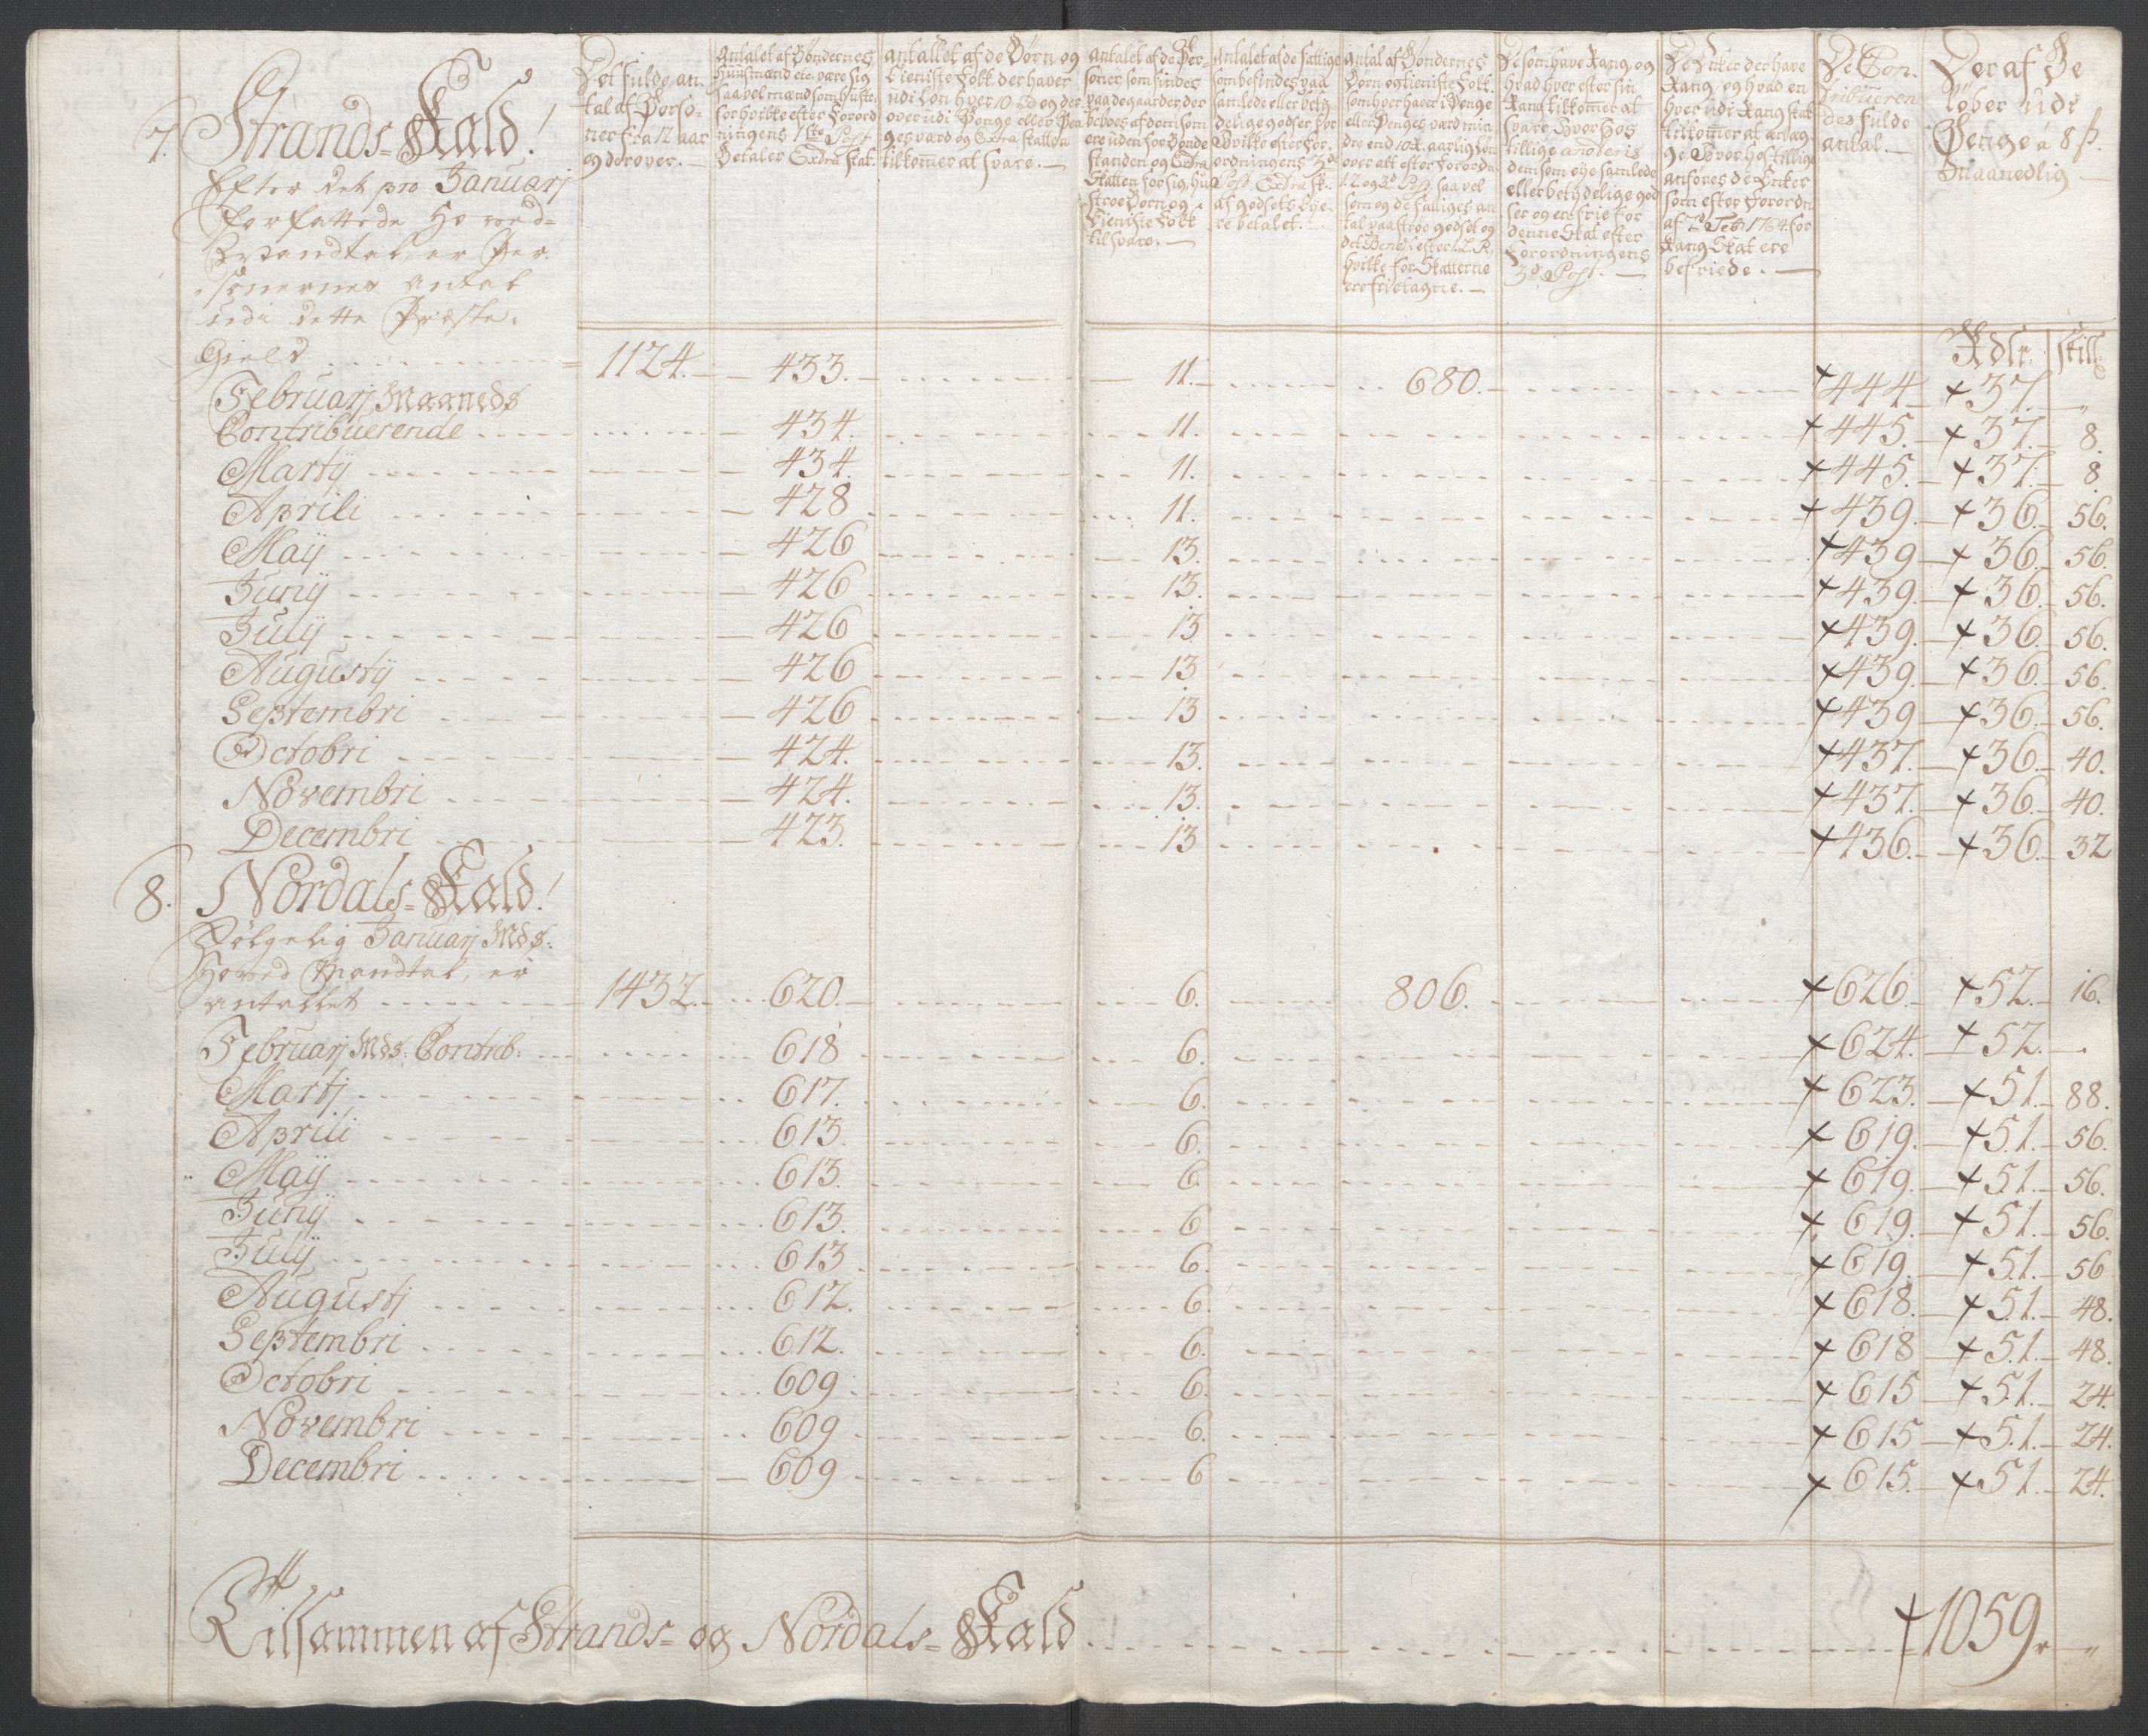 Det fulde an-
tal af Perso-
ner fra 12 aar
og derover.
Antalet af Bøndernes
Huusmænd etc. være sig
saavel mænd som Hustr:
for hvilke efter Forord
ningens 1ste Post
Betales Extra Skat.
Antallet af de Børn og
Tieniste Folk der haver
udi Løn hver 10 Rd og der
over udi Penge eller Pen
ges værd og Extra Skatten
tilkomer at svare.
Antalet af de Per-
soner som findes
paa de gaarder der
beboes af dem som
ere uden for Bonde
standen og Extra
Skatten for sig, Hu
stroe Børn og
Tieniste Folk
til svare.
Antalet af de fattige
som befindes paa
samlede eller betÿ-
delige godser for
hvilke efter For-
ordningens 3de
Post Extra Sk.
af godsets Eÿe-
re betales.
Antal af Bøndernes
Børn og Tieniste Folk
som hver haver i Penge
eller Penges værd min
dre end 10 Rd. aarlig Løn
over alt efter Forordn:
1. 2 og 3de Post saavel
som og de fattiges an
tal paa strøe godset og
hvilke for Skatterne
ere fritagne.
De som have Rang og
hvad hver efter sin
Rang tilkomer at
svare
tillige anføres
dem som eÿe samlede
eller betydelige god
ser og ere frie for
denne Skat efter
Forordningens
3de Post.
De Enker der have
Rang, og hvad en
hver udi Rang Skat
tilkomer at erlæg
ge Hvorhos tillige
anføres de Enker
som efter Forordn:
af 7de Febr 1764 for
Rang Skat ere
befriede.
De Con-
tribueren
des fulde
antal.
Deraf Be
løber udi
Penge a 8 s.
Maanedlig
7. Strands-Kald!
Efter det pro Januarj
forfattede Hoved-
Mandtal er Per-
sonernes Antal
udi dette Præste-
Gield 1124. 433. 11. 680. 444 37. Rdlr. Skill: "
Februarj Maaneds
Contribuerende 434. 11. 445. 37. 8.
Martÿ 434. 11. 445. 37. 8
Aprili 428 11. 439. 36. 56.
Maÿ 426 13. 439 36. 56.
Junÿ 426 13. 439. 36. 56.
Julÿ 426 13 439. 36. 56.
Augustÿ 426 13 439. 36. 56.
Septembri 426 13 439 36. 56.
Octobri 424. 13. 437. 36. 40.
Novembri 424. 13. 437. 36. 40.
Decembri 423. 13 436. 36. 32
8. Nordals-Kald!
Følgelig Januarj Mds:
Hoved Mandtal, er
antallet 1432. 620. 6. 806. 626. 52. 16.
Februarj Mds: Contrib: 618 6. 624. 52.
Martj 617. 6. 623. 51. 88.
Aprili 613. 6. 619. 51. 56.
Maÿ 613. 6 619. 51. 56.
Junÿ 613. 6 619. 51. 56.
Julÿ 613 6. 619. 51. 56
Augustj 612. 6. 618. 51. 48.
Septembri 612. 6. 618 51. 48.
Octobri 609 6. 615 51. 24.
Novembri 609 6. 615 51. 24.
Decembri 609 6 615. 51. 24.
Tilsammen af Strands- og Nordals-Kald 1059. "